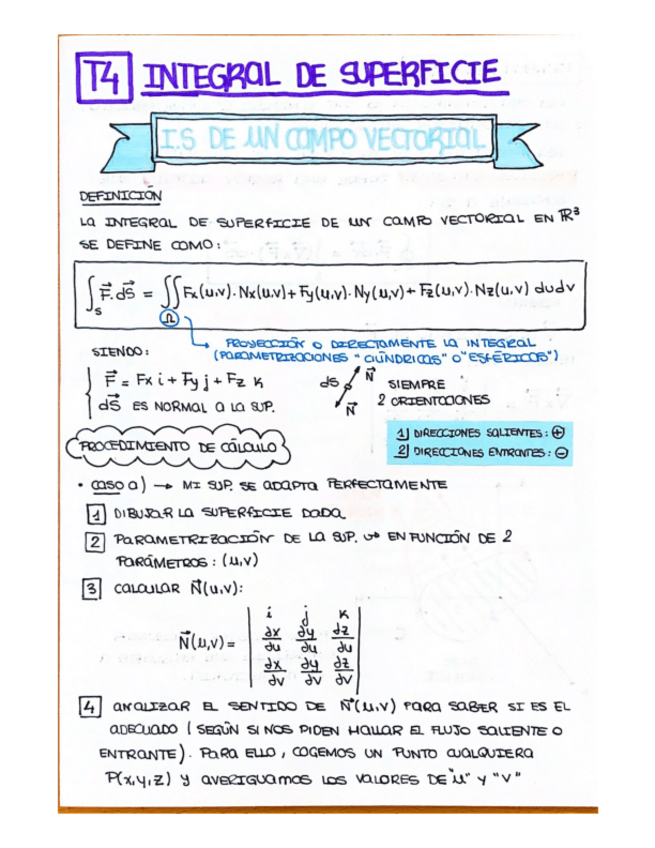 T4 INTEGRAL DE SUPERFICIE
I.S DE UN CAMPO VECTORIAL
DEFINICIÓN
LA INTEGRAL DE SUPERFICIE DE UN CAMPO VECTORIAL EN ℝ³
SE DEFINE COMO:
∫ₛ F⃗·dS⃗ = ∬_Ω Fx(u,v)·Nx(u,v)+Fy(u,v)·Ny(u,v)+Fz(u,v)·Nz(u,v) dudv
PROYECCIÓN O DIRECTAMENTE LA INTEGRAL
(PARAMETRIZACIONES "CILÍNDRICAS" O "ESFÉRICAS")
SIENDO:
F⃗ = Fx i + Fy j + Fz K
dS⃗ ES NORMAL A LA SUP.
dS N⃗ N⃗
SIEMPRE
2 ORIENTACIONES
1) DIRECCIONES SALIENTES: ⊕
2) DIRECCIONES ENTRANTES: ⊖
PROCEDIMIENTO DE CÁLCULO
• CASO a) → MI SUP. SE ADAPTA PERFECTAMENTE
1 DIBUJAR LA SUPERFICIE DADA
2 PARAMETRIZACIÓN DE LA SUP. ↪ EN FUNCIÓN DE 2
PARÁMETROS: (u,v)
3 CALCULAR N⃗(u,v):
i j K
N⃗(u,v) = | ∂x/∂u ∂y/∂u ∂z/∂u |
| ∂x/∂v ∂y/∂v ∂z/∂v |
4 ANALIZAR EL SENTIDO DE N⃗(u,v) PARA SABER SI ES EL
ADECUADO (SEGÚN SI NOS PIDEN HALLAR EL FLUJO SALIENTE O
ENTRANTE). PARA ELLO, COGEMOS UN PUNTO CUALQUIERA
P(x,y,z) Y AVERIGUAMOS LOS VALORES DE "u" Y "v"